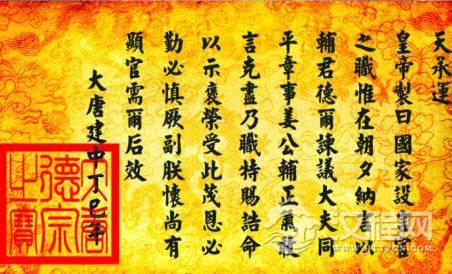 天承運
皇帝製曰國家設官
之職惟在朝夕納
輔君德爾諫議大夫同
平章事姜公輔正氣敢
言克盡乃職特賜誥命
以示褒榮受此茂恩必
勤必慎厥副朕懷尚有
顯官需爾后效
大唐建中丁巳年
大唐
德宗
之寶